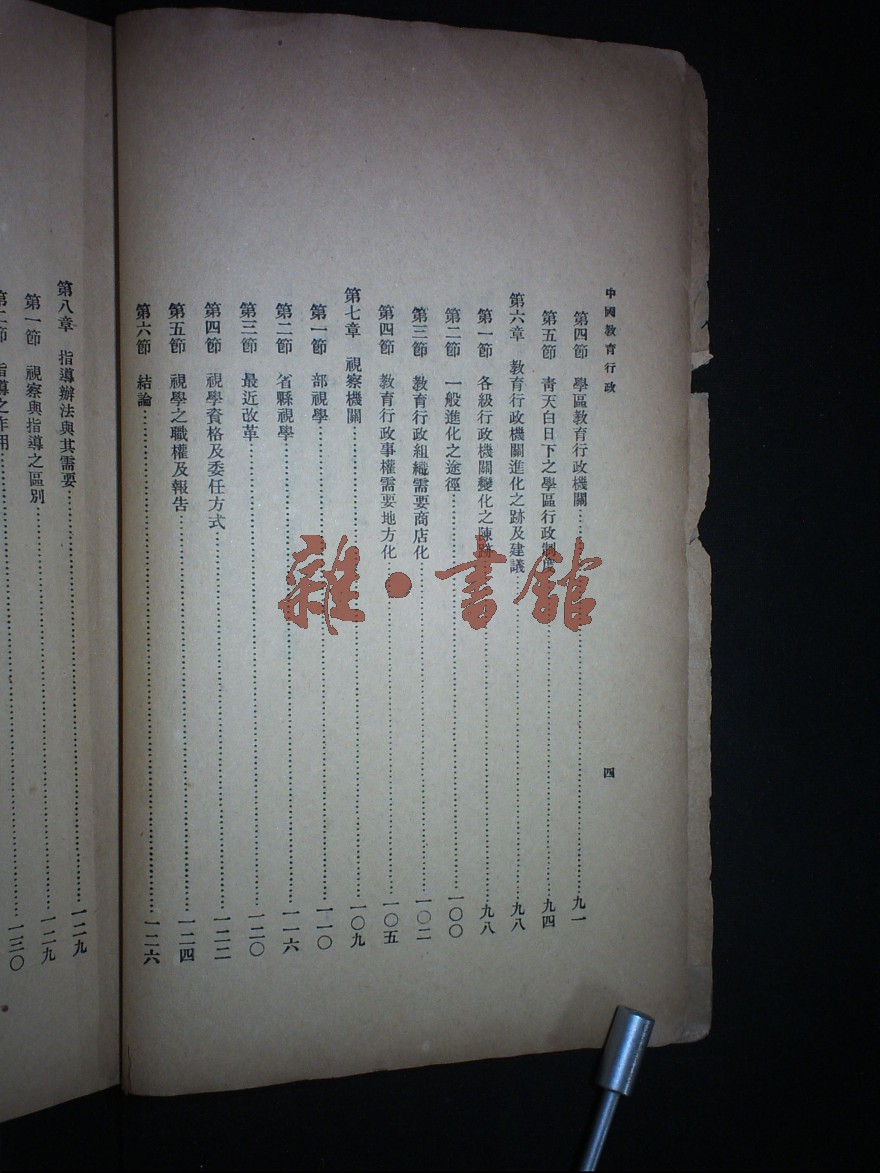 中國教育行政
四
第四節 學區教育行政機關……九一
第五節 青天白日下之學區行政制度……九四
第六章 教育行政機關進化之跡及建議……九八
第一節 各級行政機關變化之陳跡……九八
第二節 一般進化之途徑……一〇〇
第三節 教育行政組織需要商店化……一〇二
第四節 教育行政事權需要地方化……一〇五
第七章 視察機關……一〇九
第一節 部視學……一一〇
第二節 省縣視學……一一六
第三節 最近改革……一二〇
第四節 視學資格及委任方式……一二二
第五節 視學之職權及報告……一二四
第六節 結論……一二六
第八章 指導辦法與其需要……一二九
第一節 視察與指導之區別……一二九
第二節 指導之作用……一三〇
雜·書館